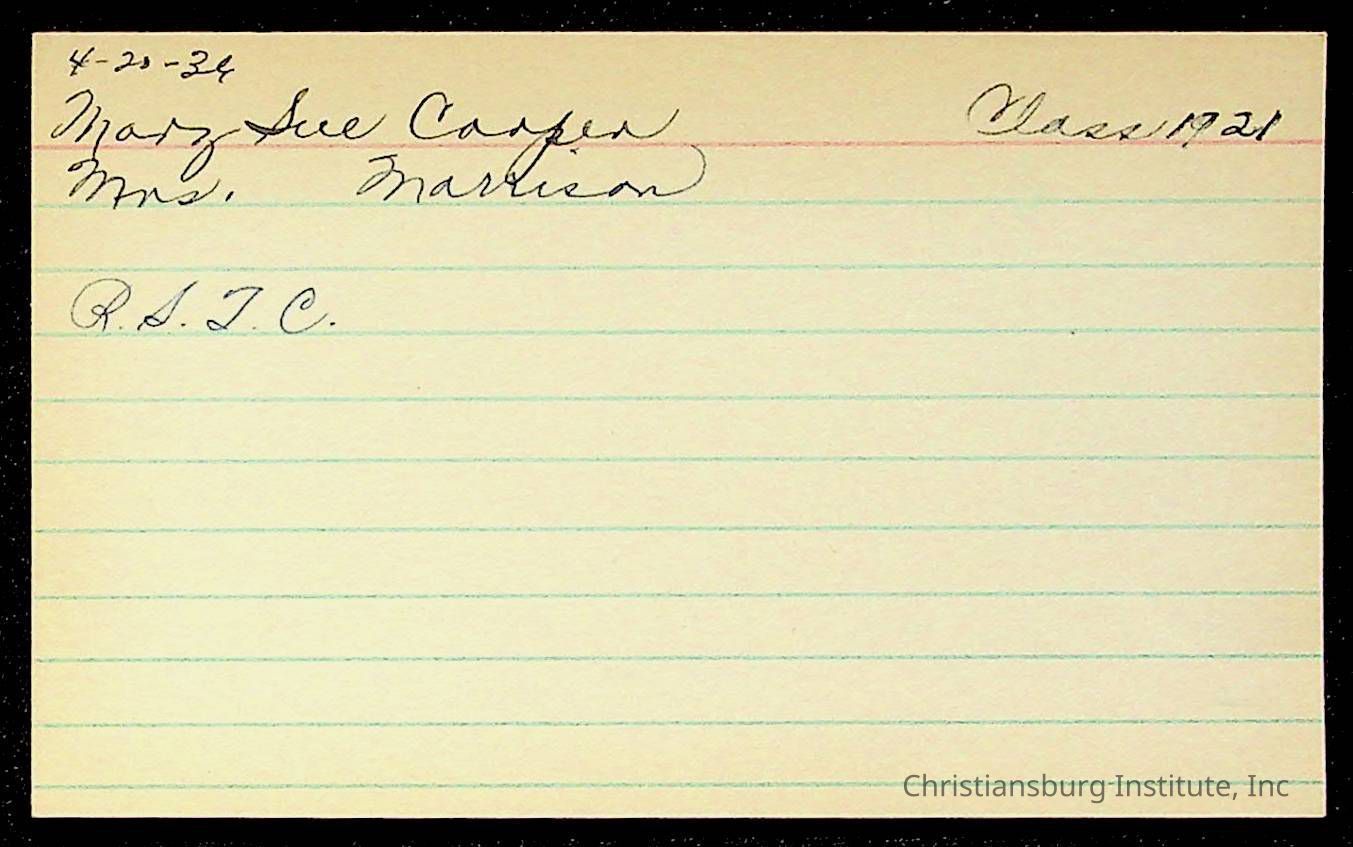 4-20-36
Mary Sue Cooper Class 1921
Mrs. Morrison
R.S.T.C.
Christiansburg Institute, Inc